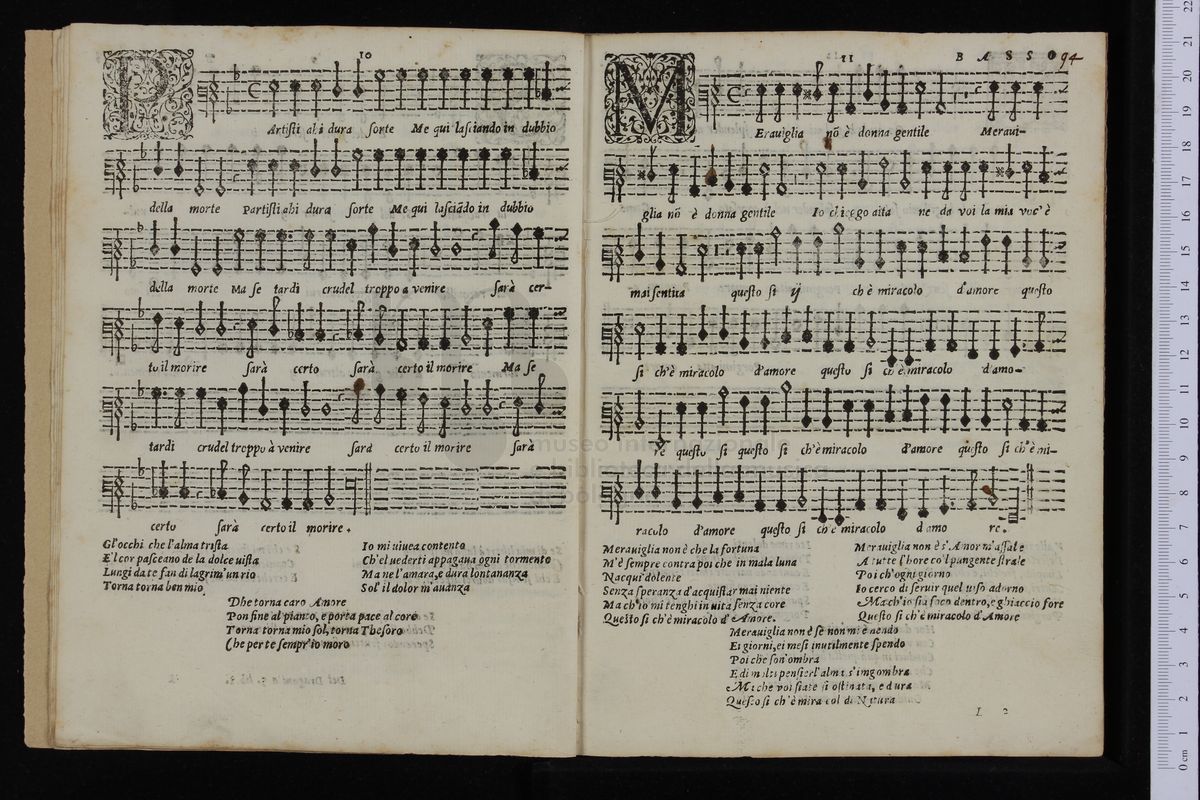 10
PArtisti ahi dura sorte Me qui lasciando in dubbio
della morte Partisti ahi dura sorte Me qui lasciãdo in dubbio
della morte Ma se tardi crudel troppo a venire sarà cer-
to il morire sarà certo sarà certo il morire Ma se
tardi crudel troppo à venire sarà certo il morire sarà
certo sarà certo il morire.
Gl'occhi che l'alma trista
E'l cor pasceano de la dolce uista
Lungi da te fan di lagrim'un rio
Torna torna ben mio
Io mi uiuea contento
Ch'el uederti appagaua ogni tormento
Ma ne l'amara, e dura lontananza
Sol' il dolor m'auanza
Dhe torna caro Amore
Pon fine al pianto, e porta pace al core
Torna torna mio sol, torna Thesoro
Che per te sempr'io moro
11 BASSO 94
MErauiglia nõ è donna gentile Meraui-
glia nõ è donna gentile Io chieggo aita ne da voi la mia voc'è
mai sentita questo si ij ch'è miracolo d'amore questo
si ch'è miracolo d'amore questo si ch'è miracolo d'amo-
re questo si questo si ch'è miracolo d'amore questo si ch'è mi-
racolo d'amore questo si ch'è miracolo d'amo re.
Merauiglia non è che la fortuna
M'è sempre contra poi che in mala luna
Nacqui dolente
Senza speranza d'acquistar mai niente
Ma ch'io mi tenghi in uita senza core
Questo si ch'è miracolo d'Amore.
Merauiglia non è s'Amor m'assale
A tutte l'hore co'l pungente strale
Poi ch'ogni giorno
Io cerco di seruir quel uiso adorno
Ma ch'io sia foco dentro, e ghiaccio fore
Questo si ch'è miracolo d'Amore
Merauiglia non è se non m'è nendo
Ei giorni, ei mesi inutilmente spendo
Poi che son'ombra
E di molti pensier l'alma s'imgombra
Ma che voi siate si ostinata, e dura
Questo si ch'è miracol di Natura
I 2
museo internazionale
e biblioteca della musica